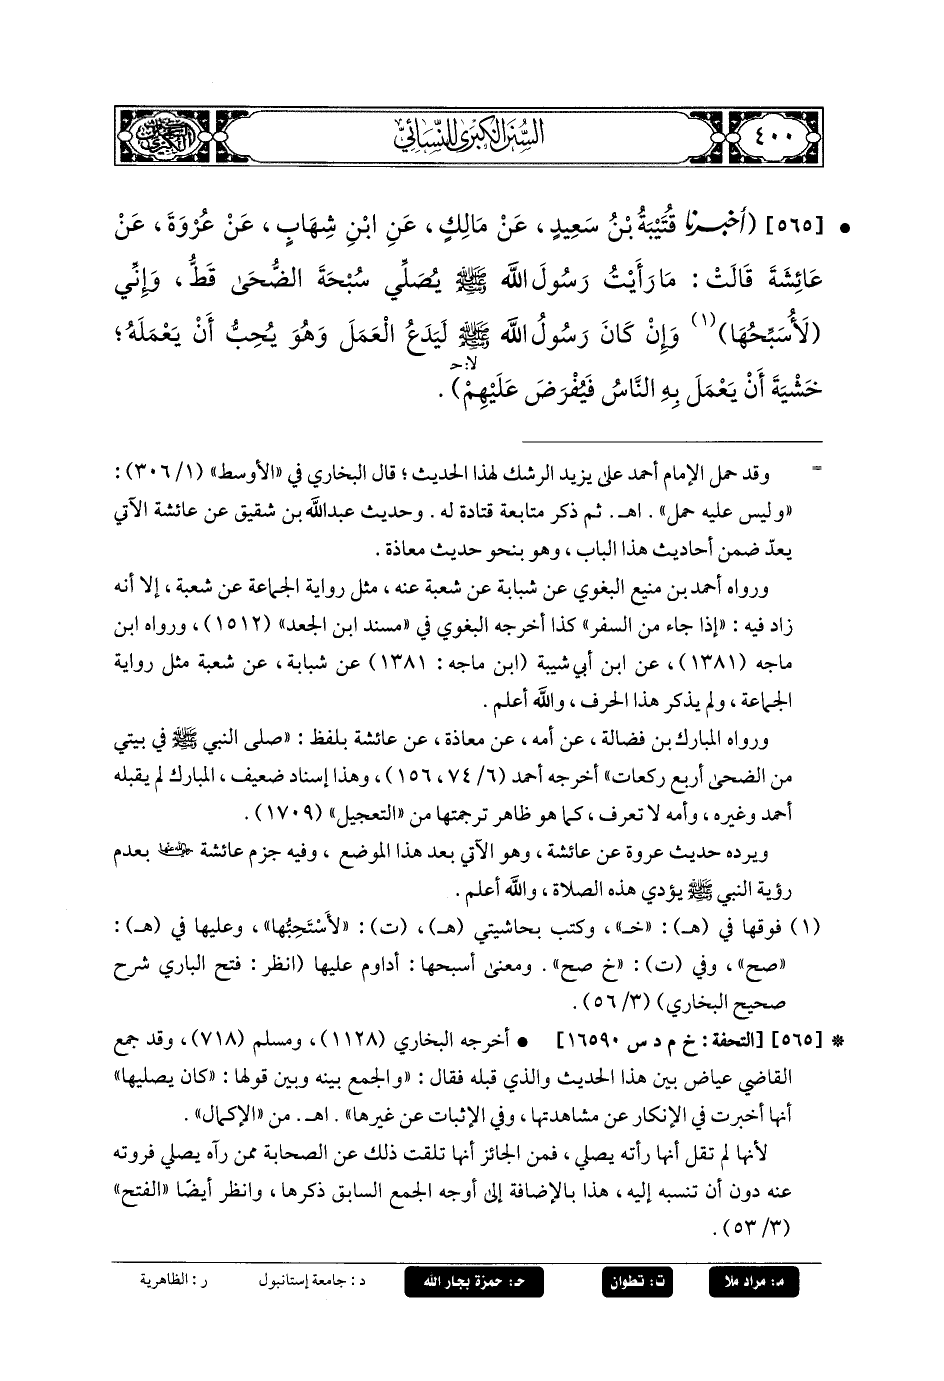 ٤٠٠
السنن الكبرى للنسائي
• [٥٦٥] (أَخْبَرَنَا قُتَيْبَةُ بْنُ سَعِيدٍ، عَنْ مَالِكٍ، عَنِ ابْنِ شِهَابٍ، عَنْ عُرْوَةَ، عَنْ
عَائِشَةَ قَالَتْ: مَا رَأَيْتُ رَسُولَ اللَّه ﷺ يُصَلِّي سُبْحَةَ الضُّحَىٰ قَطُّ، وَإِنِّي
(لَأُسَبِّحُهَا)(١) وَإِنْ كَانَ رَسُولُ اللَّه ﷺ لَيَدَعُ الْعَمَلَ وَهُوَ يُحِبُّ أَنْ يَعْمَلَهُ؛
لا:حـ
خَشْيَةَ أَنْ يَعْمَلَ بِهِ النَّاسُ فَيُفْرَضَ عَلَيْهِمْ).
= وقد حمل الإمام أحمد على يزيد الرشك لهذا الحديث؛ قال البخاري في «الأوسط» (١/ ٣٠٦):
«وليس عليه حمل». اهـ. ثم ذكر متابعة قتادة له. وحديث عبدالله بن شقيق عن عائشة الآتي
يعدّ ضمن أحاديث هذا الباب، وهو بنحو حديث معاذة.
ورواه أحمد بن منيع البغوي عن شبابة عن شعبة عنه، مثل رواية الجماعة عن شعبة، إلا أنه
زاد فيه: «إذا جاء من السفر» كذا أخرجه البغوي في «مسند ابن الجعد» (١٥١٢)، ورواه ابن
ماجه (١٣٨١)، عن ابن أبي شيبة (ابن ماجه: ١٣٨١) عن شبابة، عن شعبة مثل رواية
الجماعة، ولم يذكر هذا الحرف، والله أعلم.
ورواه المبارك بن فضالة، عن أمه، عن معاذة، عن عائشة بلفظ: «صلى النبي ﷺ في بيتي
من الضحى أربع ركعات» أخرجه أحمد (٦/ ٧٤، ١٥٦)، وهذا إسناد ضعيف، المبارك لم يقبله
أحمد وغيره، وأمه لا تعرف، كما هو ظاهر ترجمتها من «التعجيل» (١٧٠٩).
ويرده حديث عروة عن عائشة، وهو الآتي بعد هذا الموضع، وفيه جزم عائشة رضي الله عنها بعدم
رؤية النبي ﷺ يؤدي هذه الصلاة، والله أعلم.
(١) فوقها في (هـ): «خـ»، وكتب بحاشيتي (هـ)، (ت): «لأَسْتَحِبُّها»، وعليها في (هـ):
«صح»، وفي (ت): «خ صح». ومعنى أسبحها: أداوم عليها (انظر: فتح الباري شرح
صحيح البخاري) (٣/ ٥٦).
* [٥٦٥] [التحفة: خ م د س ١٦٥٩٠] • أخرجه البخاري (١١٢٨)، ومسلم (٧١٨)، وقد جمع
القاضي عياض بين هذا الحديث والذي قبله فقال: «والجمع بينه وبين قولها: «كان يصليها»
أنها أخبرت في الإنكار عن مشاهدتها، وفي الإثبات عن غيرها». اهـ. من «الإكمال».
لأنها لم تقل أنها رأته يصلي، فمن الجائز أنها تلقت ذلك عن الصحابة ممن رآه يصلي فروته
عنه دون أن تنسبه إليه، هذا بالإضافة إلى أوجه الجمع السابق ذكرها، وانظر أيضًا «الفتح»
(٣/ ٥٣).
م: مراد ملا ت: تطوان حـ: حمزة بجار الله د: جامعة إستانبول ر: الظاهرية